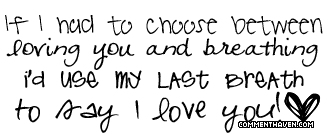 If I had to choose between
loving you and breathing
i'd use my last breath
to say I love you!
COMMENTHAVEN.COM